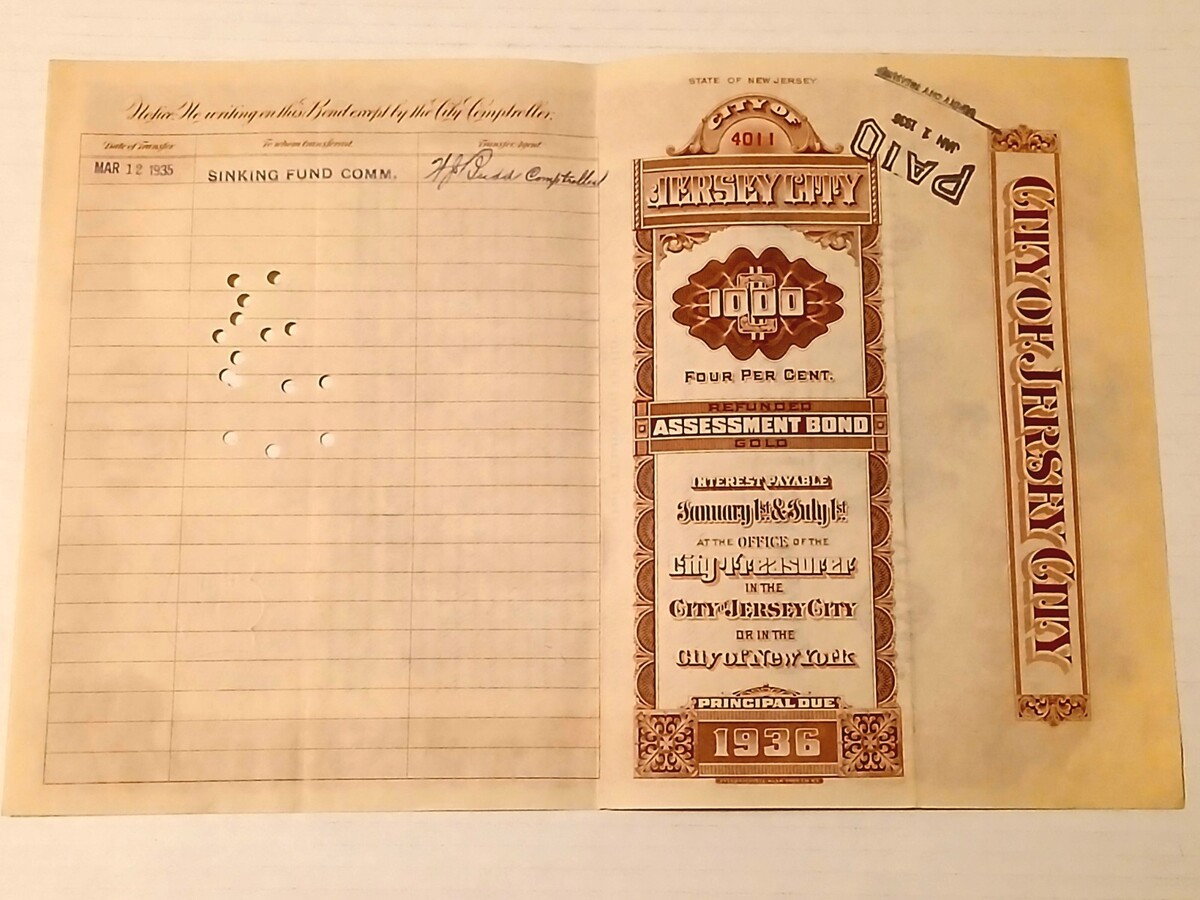 Notice. No writing on this Bond except by the City Comptroller.
Date of Transfer To whom transferred Transfer Agent
MAR 12 1935 SINKING FUND COMM. Comptroller
STATE OF NEW JERSEY
CITY OF
4011
JERSEY CITY
$1000
FOUR PER CENT.
REFUNDED
ASSESSMENT BOND
GOLD
INTEREST PAYABLE
January 1st & July 1st
AT THE OFFICE OF THE
City Treasurer
IN THE
CITY OF JERSEY CITY
OR IN THE
City of New York
PRINCIPAL DUE
1936
PAID
JAN 1 1936
CITY OF JERSEY CITY